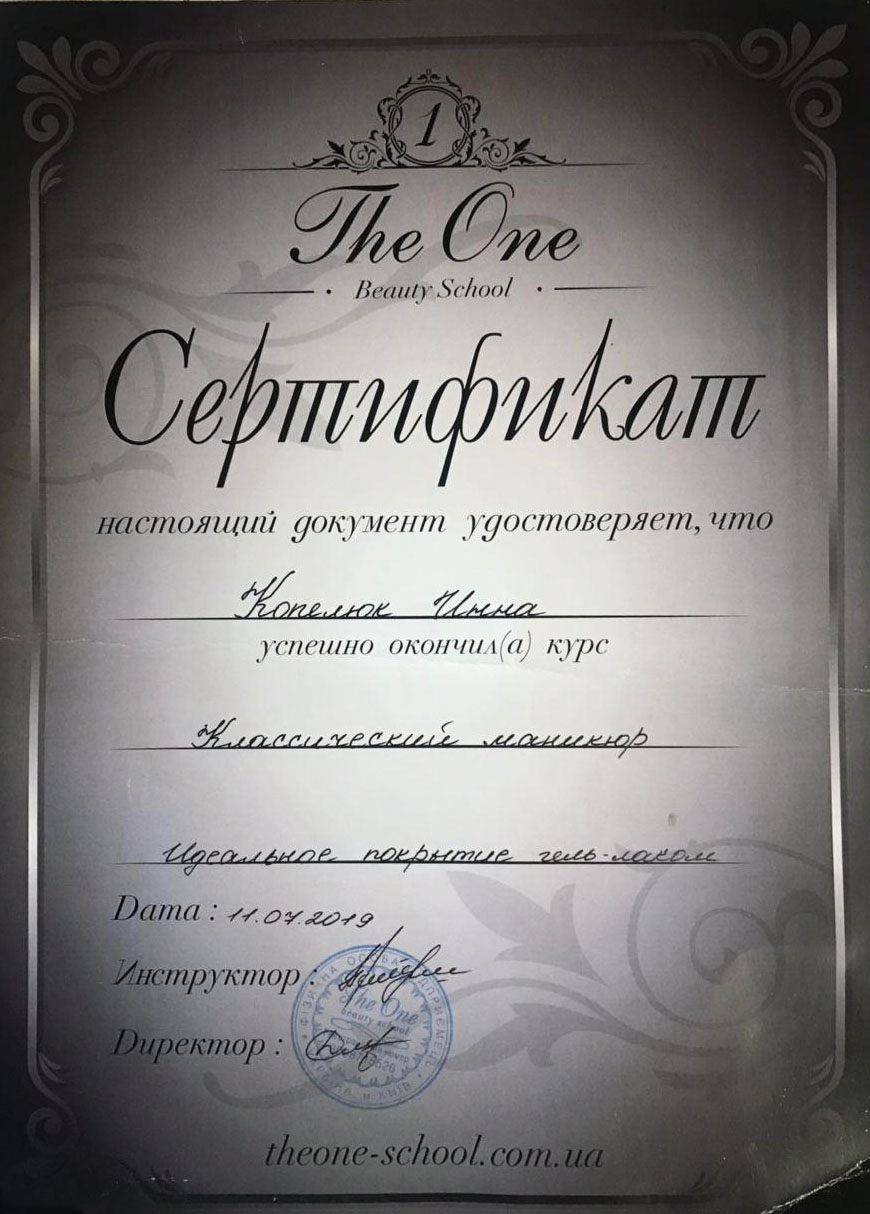 1
The One
Beauty School
Сертификат
настоящий документ удостоверяет, что
Копелюк Инна
успешно окончил(а) курс
Классический маникюр
Идеальное покрытие гель-лаком
Дата : 11.07.2019
Инструктор :
Директор :
ФІЗИЧНА ОСОБА ПІДПРИЄМЕЦЬ
The One
beauty school
м. КИЇВ
theone-school.com.ua